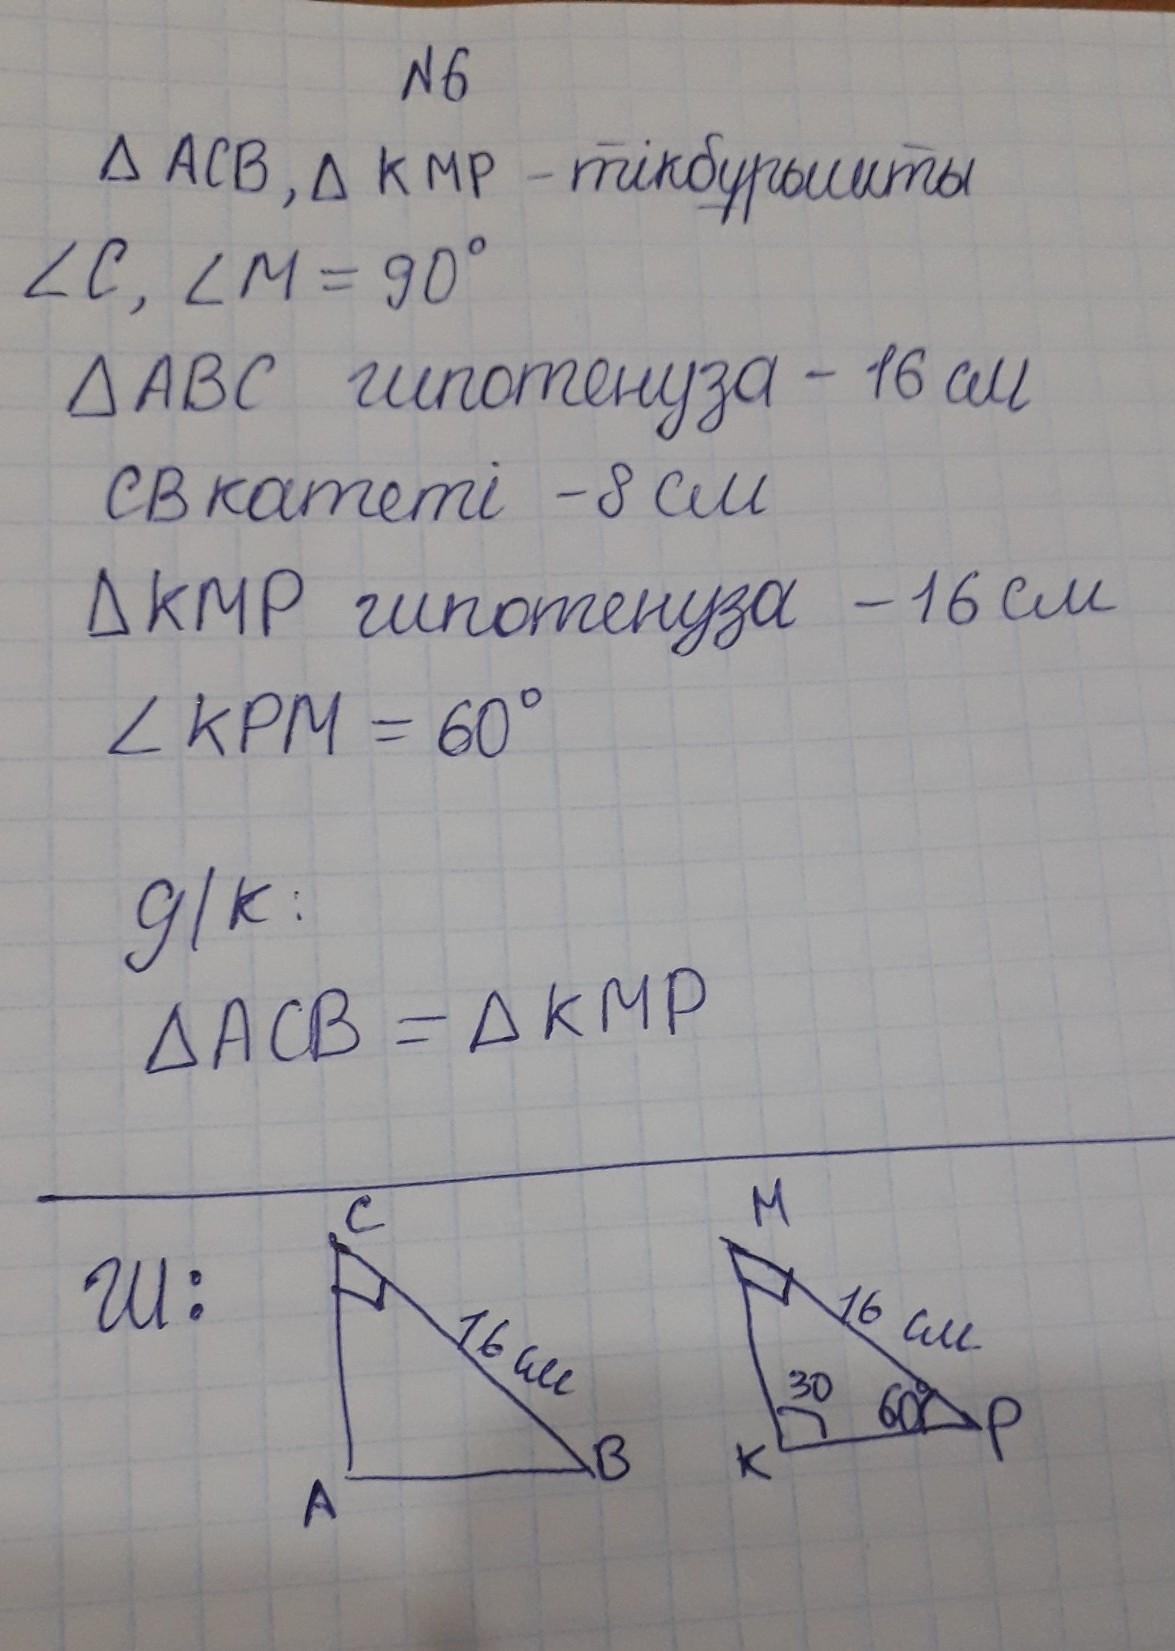 N6
Δ ACB, Δ KMP - тікбұрышты
∠C, ∠M = 90°
ΔABC гипотенуза - 16 см
CB катеті - 8 см
ΔKMP гипотенуза - 16 см
∠KPM = 60°
д/к:
ΔACB = ΔKMP
Ш:
C
M
16 см
16 см
30
60°
A
B
K
P